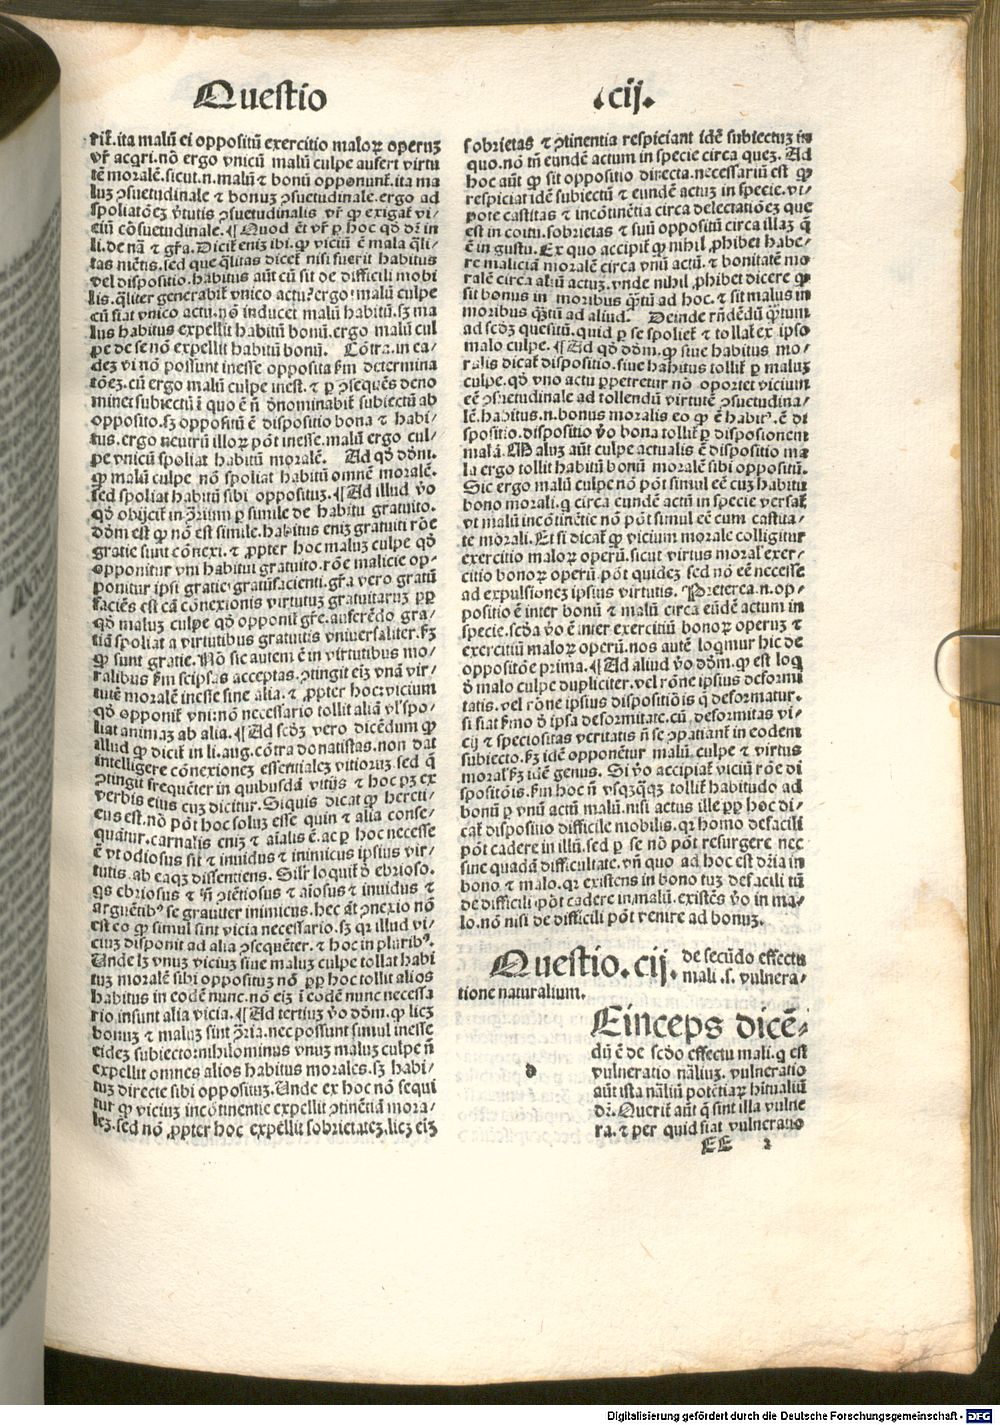 Questio
cij.
rit̃. ita malũ ei oppositũ exercitio maloꝝ operuꝫ
vr̃ acqri. nõ ergo vnicũ malũ culpe aufert virtu
tẽ moralẽ. sicut.n. malũ ⁊ bonũ opponunt̃. ita ma
luꝫ ꝯsuetudinale ⁊ bonuꝫ ꝯsuetudinale. ergo ad
spoliatõeꝫ ṽtutis ꝯsuetudinalis vr̃ ꝙ exigat̃ vi⸗
ciũ cõsuetudinale. ¶ Quod ẽt vr̃ ꝑ hoc qď dr̃ in
li. de nã ⁊ gr̃a. Dicit̃ eniꝫ ibi. ꝙ viciũ ẽ mala q̃li⸗
tas mẽtis. sed que q̃litas dicet̃ nisi fuerit habitus
vel dispositio. habitus aũt cũ sit de difficili mobi
lis. q̃liter generabit̃ vnico actu? ergo malũ culpe
cũ fiat vnico actu. nõ inducet malũ habitũ. sꝫ ma
lus habitus expellit habitũ bonũ. ergo malũ cul
pe de se nõ expellit habitũ bonũ. Cõtra. in ea⸗
deꝫ vi nõ possunt inesse opposita ẜm determina
tõeꝫ. cũ ergo malũ culpe inest. ⁊ ꝑ ꝯsequẽs deno
minet subiectũ ĩ quo ẽ ñ dnominabit̃ subiectũ ab
opposito. sꝫ oppositũ ẽ dispositio bona ⁊ habi⸗
tus. ergo neutrũ illoꝝ põt inesse. malũ ergo cul⸗
pe vnicũ spoliat habitũ moralẽ. Ad qď dõm.
ꝙ malũ culpe nõ spoliat habitũ omnẽ moralẽ.
sed spoliat habitũ sibi oppositũꝫ. ¶ Ad illud ṽo
qď obijcit̃ in ꝯriũm ꝑ simile de habitu gratuito.
dõm est ꝙ nõ est simile. habitus eniꝫ gratuiti rõe
gratie sunt cõnexi. ⁊ ꝓpter hoc maluꝫ culpe qď
opponitur vni habitui gratuito. rõe malicie op⸗
ponitur ipsi gratie gratũfacienti. gr̃a vero gratũ
faciẽs est cã cõnexionis virtutuꝫ gratuitaruꝫ ꝓp
qď maluꝫ culpe qď opponit̃ gr̃e. auferẽdo gra⸗
tiã spoliat a virtutibus gratuitis vniuersaliter. ẜꝫ
ꝙ sunt gratie. Nõ sic autem ẽ in virtutibus mo⸗
ralibus ẜm seipsas acceptas. ꝯtingit eiꝫ vnã vir⸗
tutẽ moralẽ inesse sine alia. ⁊ ꝓpter hoc. vicium
qď opponit̃ vni: nõ necessario tollit aliã vl̃ spo⸗
liat animaꝫ ab alia. ¶ Ad scďꝫ vero dicẽdum ꝙ
illud ꝙ dicit̃ in li. aug. cõtra donatistas. non dat
intelligere cõnexioneꝫ essentialeꝫ vitiorum. sed q̃
ꝯtingit frequẽter in quibusdã vitijs ⁊ hoc pꝫ ex
verbis eius cuꝫ dicitur. Siquis dicat ꝙ hereti⸗
cus est. nõ põt hoc soluꝫ esse quin ⁊ alia conse⸗
quãtur. carnalis eniꝫ ⁊ aĩalis ẽ. ac ꝑ hoc necesse
ẽ vt odiosus sit ⁊ inuidus ⁊ inimicus ipsius vir⸗
tutis. ab eaqꝫ dissentiens. Silr̃ loquit̃ ď ebrioso.
qs ebriosus ⁊ ñ ꝯtẽtiosus ⁊ aĩosus ⁊ inuidus ⁊
arguẽtibꝰ se grauiter inimicus. hec aũt ꝯnexio nõ
est eo ꝙ simul sint vicia necessario. sꝫ qr illud vi⸗
ciuꝫ disponit ad alia ꝯsequẽter. ⁊ hoc in pluribꝰ.
Unde lꝫ vnuꝫ viciuꝫ siue maluꝫ culpe tollat habi
tuꝫ moralẽ sibi oppositũꝫ nõ ꝓp hoc tollit alios
habitus in eodẽ nunc. nõ eiꝫ ĩ eodẽ nunc necessa
rio insunt alia vicia. ¶ Ad tertiuꝫ ṽo dõm. ꝙ licꝫ
bonuꝫ ⁊ maluꝫ sint ꝯria. nec possunt simul inesse
eideꝫ subiecto: nihilominus vnuꝫ maluꝫ culpe ñ
expellit omnes alios habitus morales. sꝫ habi⸗
tuꝫ directe sibi oppositũꝫ. Unde ex hoc nõ sequi
tur ꝙ viciuꝫ incõtinentie expellit ꝯtinẽtiã mora⸗
leꝫ. sed nõ ꝓpter hoc expellit sobrietateꝫ. licꝫ eiꝫ
sobrietas ⁊ ꝯtinentia respiciant idẽ subiectuꝫ in
quo. nõ tñ eundẽ actum in specie circa queꝫ. Ad
hoc aũt ꝙ sit oppositio directa. necessariũ est ꝙ
respiciat idẽ subiectũ ⁊ eundẽ actuꝫ in specie. vt⸗
pote castitas ⁊ incõtinẽtia circa delectatiõeꝫ que
est in coitu. sobrietas ⁊ suũ oppositũ circa illaꝫ q̃
ẽ in gustu. Ex quo accipit̃ ꝙ nihil ꝓhibet habe⸗
re maliciam moralẽ circa vnũ actũ. ⁊ bonitatẽ mo
ralẽ circa aliũ actuꝫ. vnde nihil ꝓhibet dicere ꝙ
sit bonus in moribus q̃tũ ad hoc. ⁊ sit malus in
moribus q̃tũ ad aliud. Deinde rñdẽdũ q̃tum
ad scďꝫ quesitũ. quid ꝑ se spoliet̃ ⁊ tollat̃ ex ipso
malo culpe. ¶ Ad qď dõm. ꝙ siue habitus mo⸗
ralis dicat̃ dispositio. siue habitus tollit̃ ꝑ maluꝫ
culpe. qď vno actu ꝑpetretur nõ oportet vicium
eẽ ꝯsuetudinale ad tollendũ virtutẽ ꝯsuetudina⸗
lẽ. habitus.n. bonus moralis eo ꝙ ẽ habitꝰ. ẽ di
spositio. dispositio ṽo bona tollit̃ ꝑ disposionem
malã. Maluꝫ aũt culpe actualis ẽ dispositio ma
la ergo tollit habitũ bonũ moralẽ sibi oppositũ.
Sic ergo malũ culpe nõ põt simul eẽ cuꝫ habitu
bono morali. q circa eundẽ actũ in specie versat̃
vt malũ incõtinẽtie nõ põt simul eẽ cum castita⸗
te morali. Et si dicat̃ ꝙ vicium morale colligitur
exercitio maloꝝ operũ. sicut virtus moral̃ exer⸗
citio bonoꝝ operũ põt quideꝫ sed nõ eẽ necesse
ad expulsioneꝫ ipsius virtutis. Preterea.n. op⸗
positio ẽ inter bonũ ⁊ malũ circa eũdẽ actum in
specie. scďa ṽo ẽ inter exercitiũ bonoꝝ operuꝫ ⁊
exercitiũ maloꝝ operũ. nos autẽ loqmur hic de
oppositõe prima. ¶ Ad aliud ṽo dõm. ꝙ est loq
ď malo culpe dupliciter. vel rõne ipsius deformi
tatis. vel rõne ipsius dispositiõis q deformatur.
si fiat ẜmo ď ipsa deformitate. cũ deformitas vi⸗
cij ⁊ speciositas veritatis ñ se ꝯpatiant̃ in eodem
subiecto. ẜꝫ idẽ opponẽtur malũ culpe ⁊ virtus
moral̃ ẜꝫ idẽ genus. Si ṽo accipiat̃ viciũ rõe di
spositõis. ẜm hoc ñ vsqꝫq̃qꝫ tollit̃ habitudo ad
bonũ ꝑ vnũ actũ malũ. nisi actus ille ꝓp hoc di⸗
cat̃ dispositio difficile mobilis. qr homo defacili
põt cadere in illũ. sed ꝑ se nõ põt resurgere nec
sine quadã difficultate. vñ quo ad hoc est dr̃ia in
bono ⁊ malo. qr existens in bono tuꝫ defacili tũ
de difficili põt cadere in malũ. existẽs ṽo in ma⸗
lo. nõ nisi de difficili põt renire ad bonuꝫ.
Questio. cij. de secũdo effectu
mali .s. vulnera⸗
tione naturalium.
Einceps dicẽ⸗
dũ ẽ de scďo effectu mali. q est
vulneratio nãliuꝫ. vulneratio
aũt ista nãliũ potẽtiaꝝ hũaliũ
dr̃. Querit̃ aũt q̃ sint illa vulne
ra. ⁊ per quid fiat vulneratio
d
EE 2
Digitalisierung gefördert durch die Deutsche Forschungsgemeinschaft - DFG